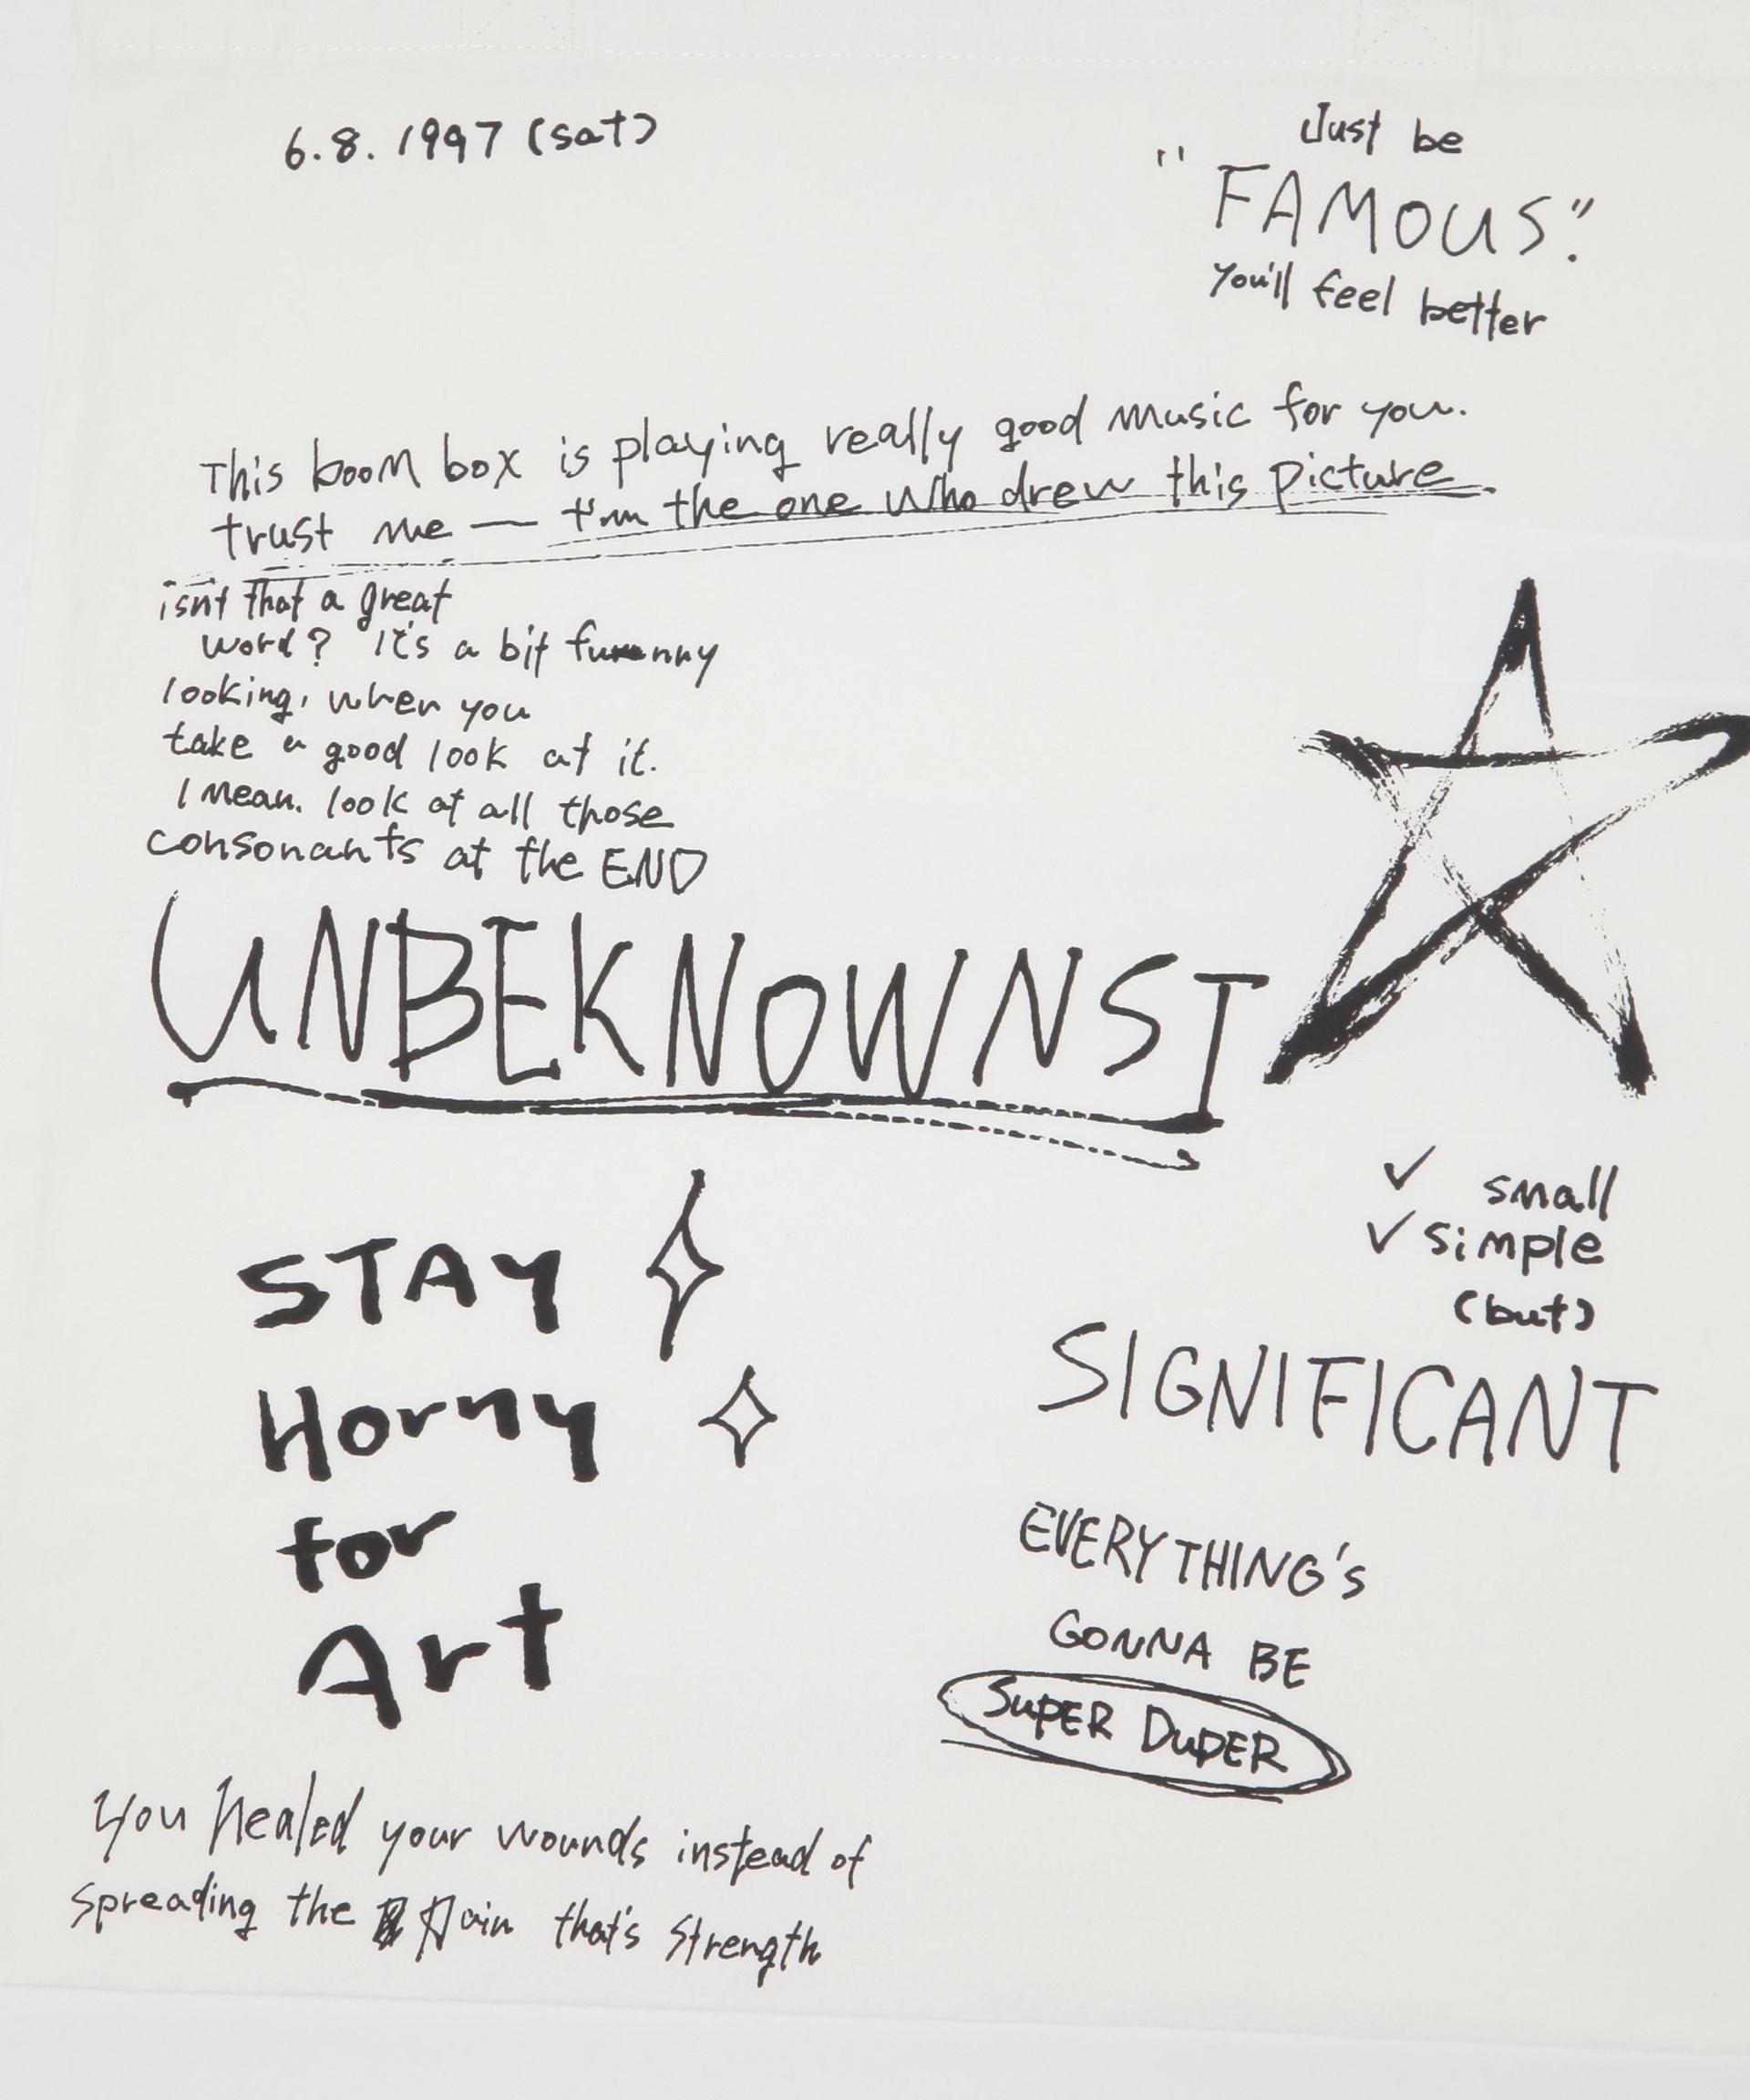 6.8.1997 (sat)
Just be
"FAMOUS".
You'll feel better
This boom box is playing really good music for you.
trust me — I'm the one who drew this picture
isnt that a great
word? It's a bit funny
looking, when you
take a good look at it.
I mean. look at all those
consonants at the END
UNBEKNOWNST
✓ small
✓ simple
(but)
SIGNIFICANT
STAY
Horny
for
Art
EVERYTHING'S
GONNA BE
SUPER DUPER
You healed your wounds instead of
spreading the pain that's strength